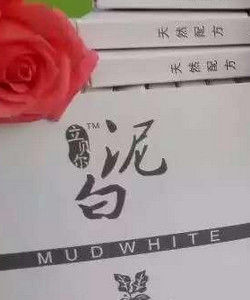 天然配方
天然配方
立见尔™
泥白
MUDWHITE